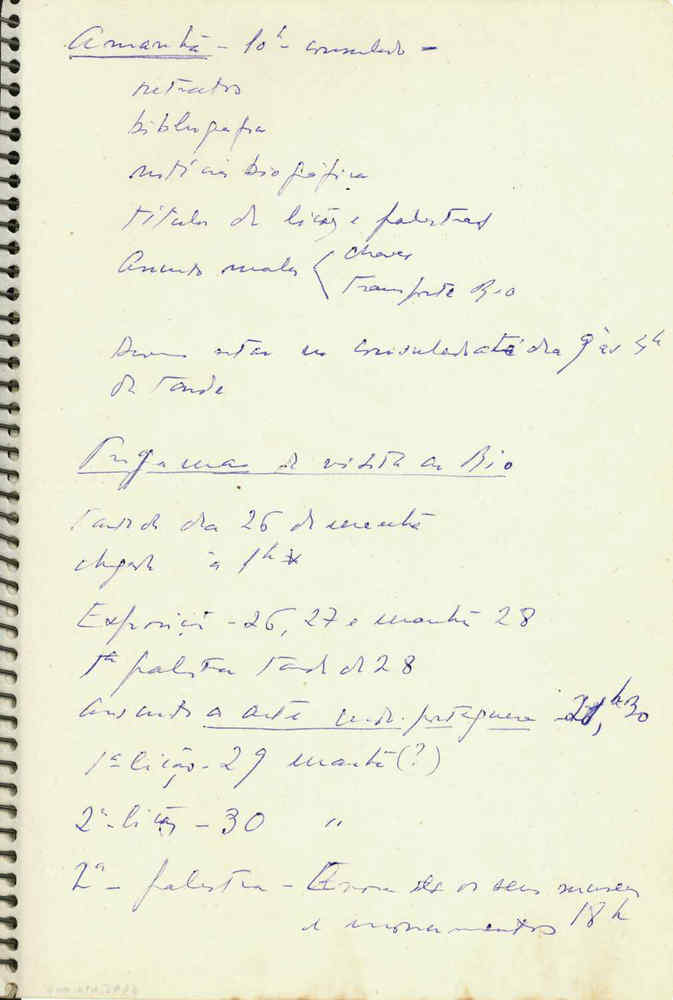 Amanhã - 10h - consulado -
retratos
bibliografia
notícia biográfica
títulos de lições e palestras
Assunto malas { chaves
transporte Rio
Devem estar no consulado até dia 9 às 5h
da tarde
Programa de visita ao Rio
dia 26 de manhã
chegada à 1h
Exposição - 26, 27 e manhã 28
1ª palestra tarde de 28
assunto a arte mod. portuguesa - 21,h30
1ª lição - 29 manhã (?)
2ª lição - 30 "
2ª - palestra - Évora os seus museus
e monumentos 18h